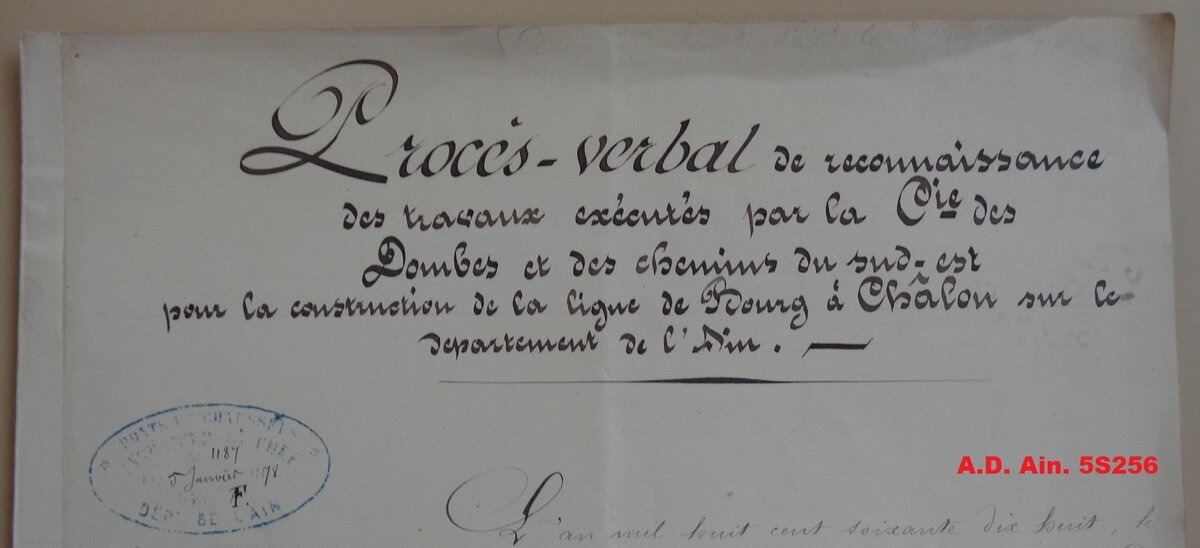 Procès-verbal de reconnaissance
des travaux exécutés par la Cie des
Dombes et des chemins du sud-est
pour la construction de la ligne de Bourg à Châlon sur le
département de l'Ain. —
PONTS ET CHAUSSÉES
1187
5 Janvier 1878
F.
DEPT DE L'AIN
A.D. Ain. 5S256
L'an mil huit cent soixante dix huit, le